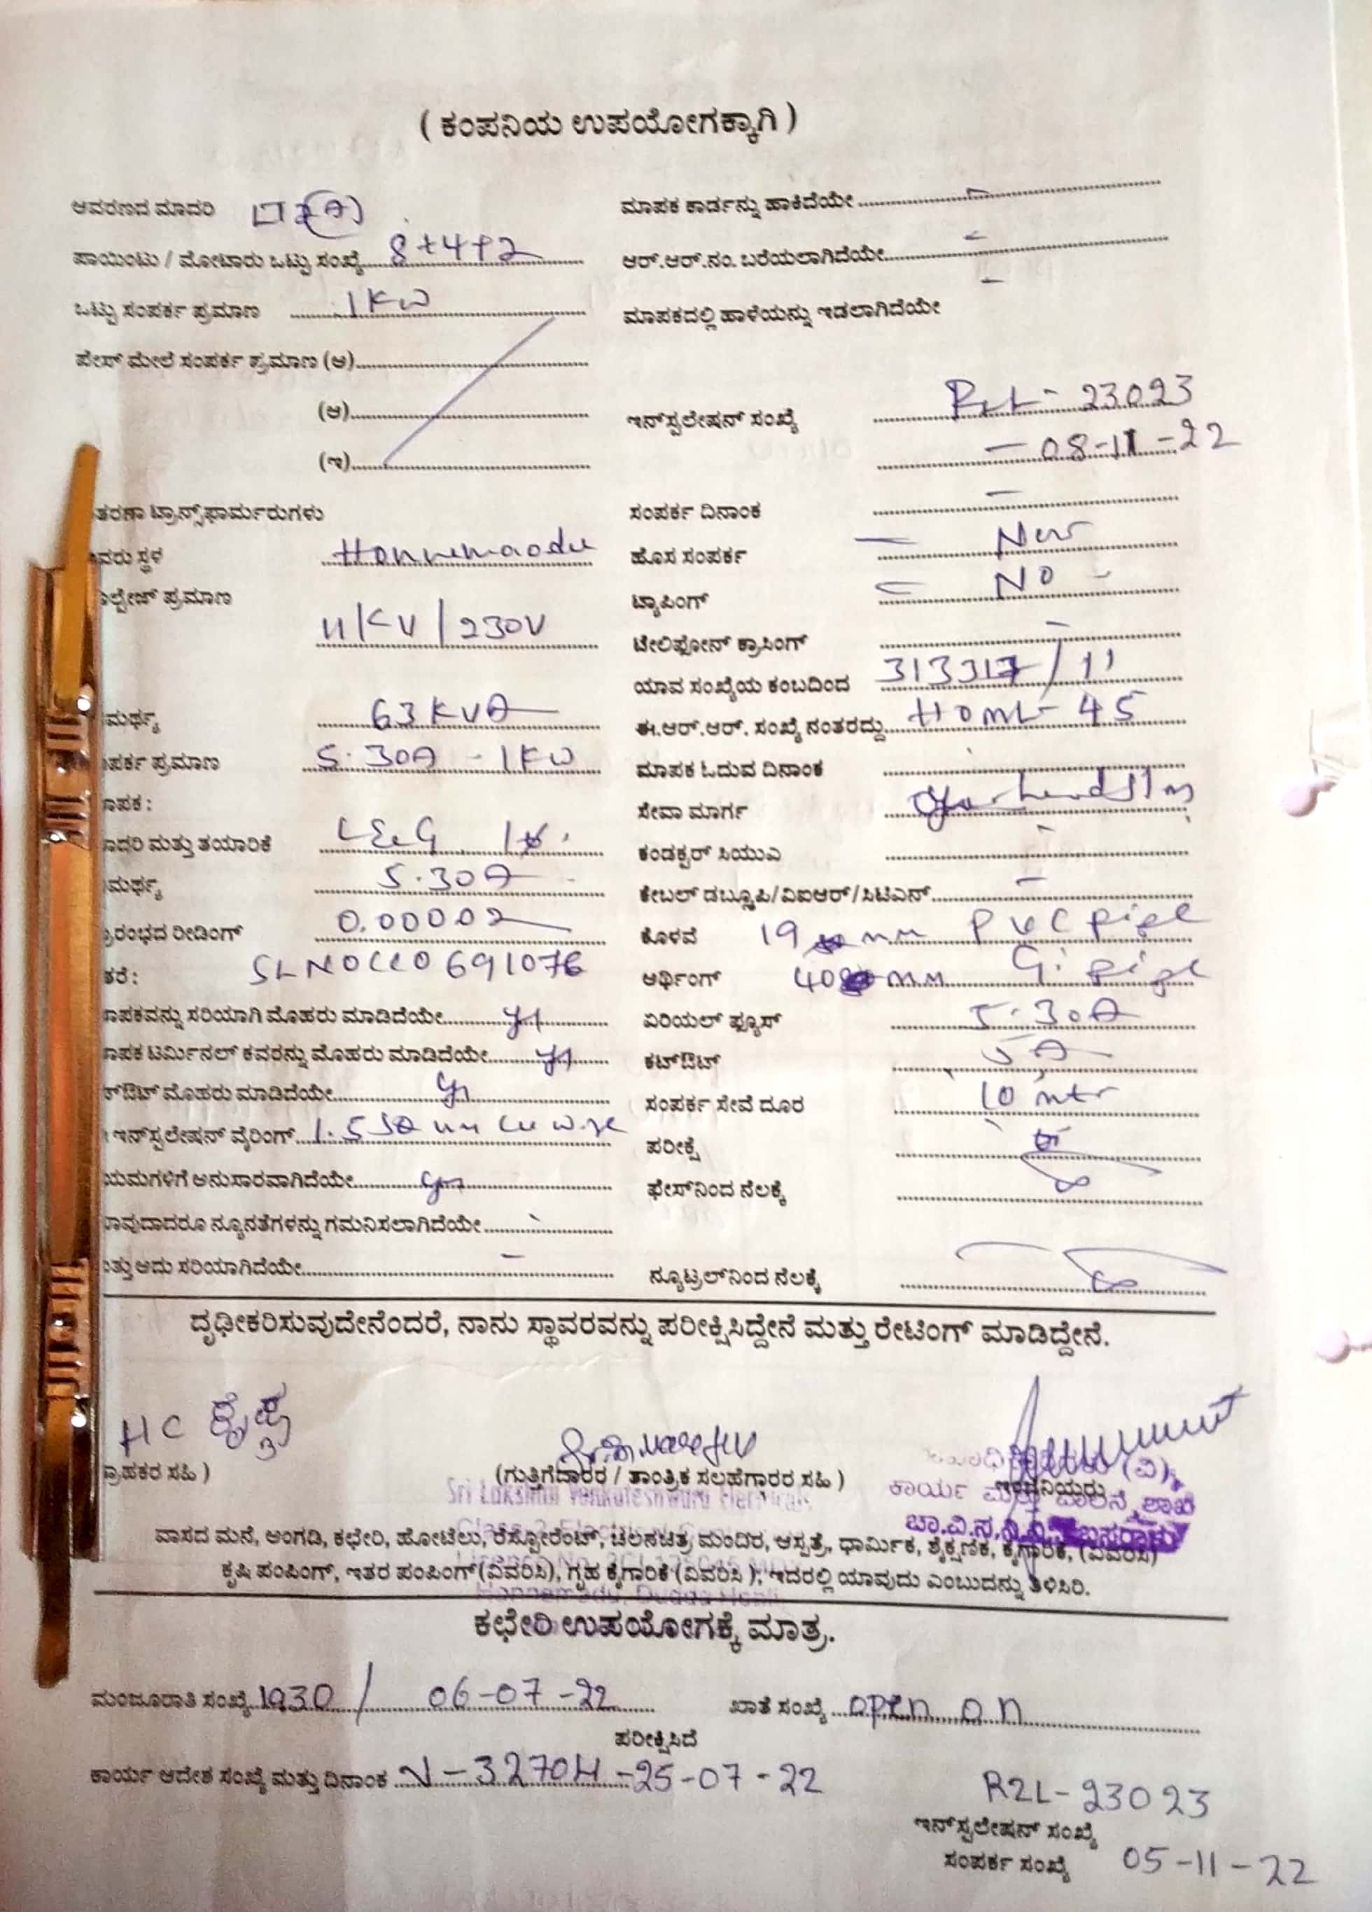 ( ಕಂಪನಿಯ ಉಪಯೋಗಕ್ಕಾಗಿ )
ಆವರಣದ ಮಾದರಿ
ಮಾಪಕ ಕಾರ್ಡನ್ನು ಹಾಕಿದೆಯೇ
ಪಾಯಿಂಟು / ಮೋಟಾರು ಒಟ್ಟು ಸಂಖ್ಯೆ 8+4+2
ಆರ್.ಆರ್.ನಂ. ಬರೆಯಲಾಗಿದೆಯೇ
ಒಟ್ಟು ಸಂಪರ್ಕ ಪ್ರಮಾಣ 1KW
ಮಾಪಕದಲ್ಲಿ ಹಾಳೆಯನ್ನು ಇಡಲಾಗಿದೆಯೇ
ಪೇಸ್ ಮೇಲೆ ಸಂಪರ್ಕ ಪ್ರಮಾಣ (ಅ)
(ಆ)
ಇನ್‌ಸ್ಟಲೇಷನ್ ಸಂಖ್ಯೆ R2L-23023
(ಇ)
- 08-11-22
ತರಣಾ ಟ್ರಾನ್ಸ್‌ಫಾರ್ಮರುಗಳು
ಸಂಪರ್ಕ ದಿನಾಂಕ
ವರು ಸ್ಥಳ Honnemaadu
ಹೊಸ ಸಂಪರ್ಕ New
ಲ್ಟೇಜ್ ಪ್ರಮಾಣ 11KV/230V
ಟ್ಯಾಪಿಂಗ್ NO
ಟೇಲಿಫೋನ್ ಕ್ರಾಸಿಂಗ್
ಯಾವ ಸಂಖ್ಯೆಯ ಕಂಬದಿಂದ 313317/11
ಮರ್ಥ್ಯ 63KVA
ಈ.ಆರ್.ಆರ್. ಸಂಖ್ಯೆ ನಂತರದ್ದು HOML-45
ಪರ್ಕ ಪ್ರಮಾಣ 5.30A - 1KW
ಮಾಪಕ ಓದುವ ದಿನಾಂಕ
ಾಪಕ :
ಸೇವಾ ಮಾರ್ಗ
ಾದರಿ ಮತ್ತು ತಯಾರಿಕೆ L&G
ಕಂಡಕ್ಟರ್ ಸಿಯುಎ
ಮರ್ಥ್ಯ 5.30A
ಕೇಬಲ್ ಡಬ್ಲ್ಯೂಪಿ/ವಿಐಆರ್/ಸಿಟಿಎಸ್
ರಂಭದ ರೀಡಿಂಗ್ 0.00002
ಕೊಳವೆ 19 mm PVC pipe
ತರೆ : SLNO 0691076
ಆರ್ಥಿಂಗ್ 40 mm G.i pipe
ಾಪಕವನ್ನು ಸರಿಯಾಗಿ ಮೊಹರು ಮಾಡಿದೆಯೇ yes
ಏರಿಯಲ್ ಫ್ಯೂಸ್ 5.30A
ಾಪಕ ಟರ್ಮಿನಲ್ ಕವರನ್ನು ಮೊಹರು ಮಾಡಿದೆಯೇ yes
ಕಟ್‌ಔಟ್ 5A
ಟ್‌ಔಟ್ ಮೊಹರು ಮಾಡಿದೆಯೇ yes
ಸಂಪರ್ಕ ಸೇವೆ ದೂರ 10 mtr
ಇನ್‌ಸ್ಟಲೇಷನ್ ವೈರಿಂಗ್ 1.5 SQ mm cu wire
ಪರೀಕ್ಷೆ
ಯಮಗಳಿಗೆ ಅನುಸಾರವಾಗಿದೆಯೇ yes
ಫೇಸ್‌ನಿಂದ ನೆಲಕ್ಕೆ
ಾವುದಾದರೂ ನ್ಯೂನತೆಗಳನ್ನು ಗಮನಿಸಲಾಗಿದೆಯೇ
ತ್ತು ಅದು ಸರಿಯಾಗಿದೆಯೇ
ನ್ಯೂಟ್ರಲ್‌ನಿಂದ ನೆಲಕ್ಕೆ
ದೃಢೀಕರಿಸುವುದೇನೆಂದರೆ, ನಾನು ಸ್ಥಾವರವನ್ನು ಪರೀಕ್ಷಿಸಿದ್ದೇನೆ ಮತ್ತು ರೇಟಿಂಗ್ ಮಾಡಿದ್ದೇನೆ.
HC
ರಾಹಕರ ಸಹಿ )
(ಗುತ್ತಿಗೆದಾರರ / ತಾಂತ್ರಿಕ ಸಲಹೆಗಾರರ ಸಹಿ )
Sri Lakshmi Venkateshwara Electricals
ಕಾರ್ಯ ಮತ್ತು ಪಾಲನೆ ಶಾಖೆ
ವಾಸದ ಮನೆ, ಅಂಗಡಿ, ಕಛೇರಿ, ಹೋಟೆಲು, ರೆಸ್ಟೋರೆಂಟ್, ಚಲನಚಿತ್ರ ಮಂದಿರ, ಆಸ್ಪತ್ರೆ, ಧಾರ್ಮಿಕ, ಶೈಕ್ಷಣಿಕ, ಕೈಗಾರಿಕೆ, (ವಿವರಿಸಿ)
ಕೃಷಿ ಪಂಪಿಂಗ್, ಇತರ ಪಂಪಿಂಗ್(ವಿವರಿಸಿ), ಗೃಹ ಕೈಗಾರಿಕೆ (ವಿವರಿಸಿ ), ಇದರಲ್ಲಿ ಯಾವುದು ಎಂಬುದನ್ನು ತಿಳಿಸಿರಿ.
ಕಛೇರಿ ಉಪಯೋಗಕ್ಕೆ ಮಾತ್ರ.
ಮಂಜೂರಾತಿ ಸಂಖ್ಯೆ 1930 / 06-07-22 ಖಾತೆ ಸಂಖ್ಯೆ open on
ಪರೀಕ್ಷಿಸಿದೆ
ಕಾರ್ಯ ಆದೇಶ ಸಂಖ್ಯೆ ಮತ್ತು ದಿನಾಂಕ N-32704-25-07-22
R2L-23023
ಇನ್‌ಸ್ಟಲೇಷನ್ ಸಂಖ್ಯೆ
ಸಂಪರ್ಕ ಸಂಖ್ಯೆ 05-11-22